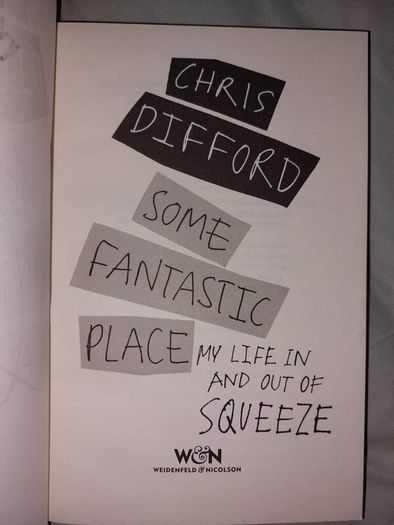 CHRIS
DIFFORD
SOME
FANTASTIC
PLACE MY LIFE IN
AND OUT OF
SQUEEZE
W&N
WEIDENFELD & NICOLSON